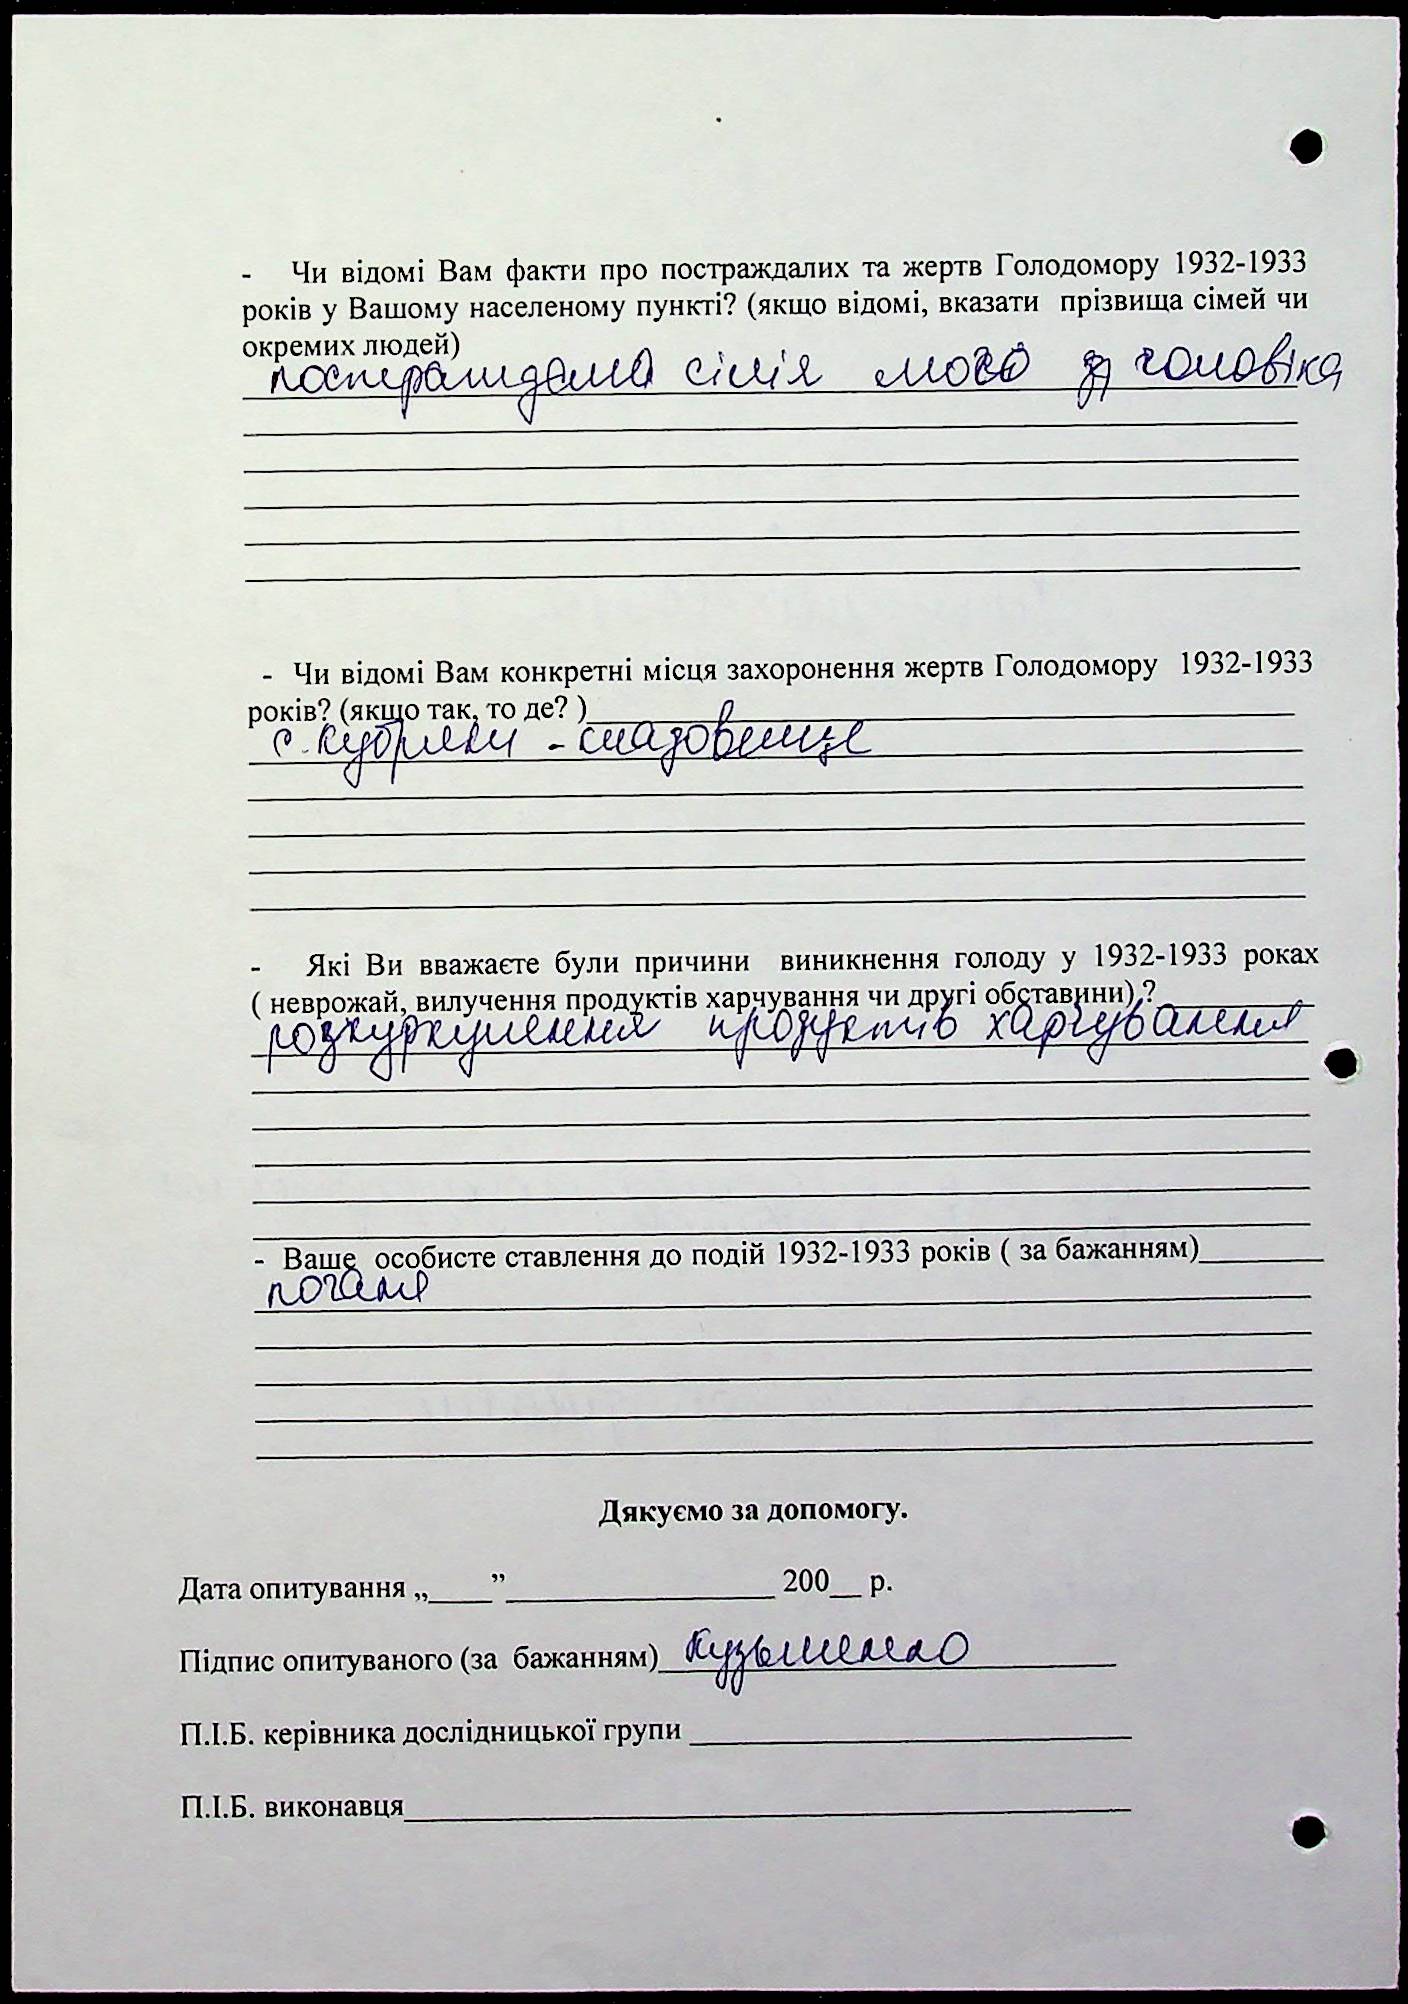 - Чи відомі Вам факти про постраждалих та жертв Голодомору 1932-1933
років у Вашому населеному пункті? (якщо відомі, вказати прізвища сімей чи
окремих людей)
постраждала сімія мого чоловіка
- Чи відомі Вам конкретні місця захоронення жертв Голодомору 1932-1933
років? (якщо так, то де? )
с. Кубряки - кладовище
- Які Ви вважаєте були причини виникнення голоду у 1932-1933 роках
( неврожай, вилучення продуктів харчування чи другі обставини) ?
розкуркулення продуктів харчування
- Ваше особисте ставлення до подій 1932-1933 років ( за бажанням)
погане
Дякуємо за допомогу.
Дата опитування „____”____ 200__ р.
Підпис опитуваного (за бажанням) Кузьменко
П.І.Б. керівника дослідницької групи
П.І.Б. виконавця